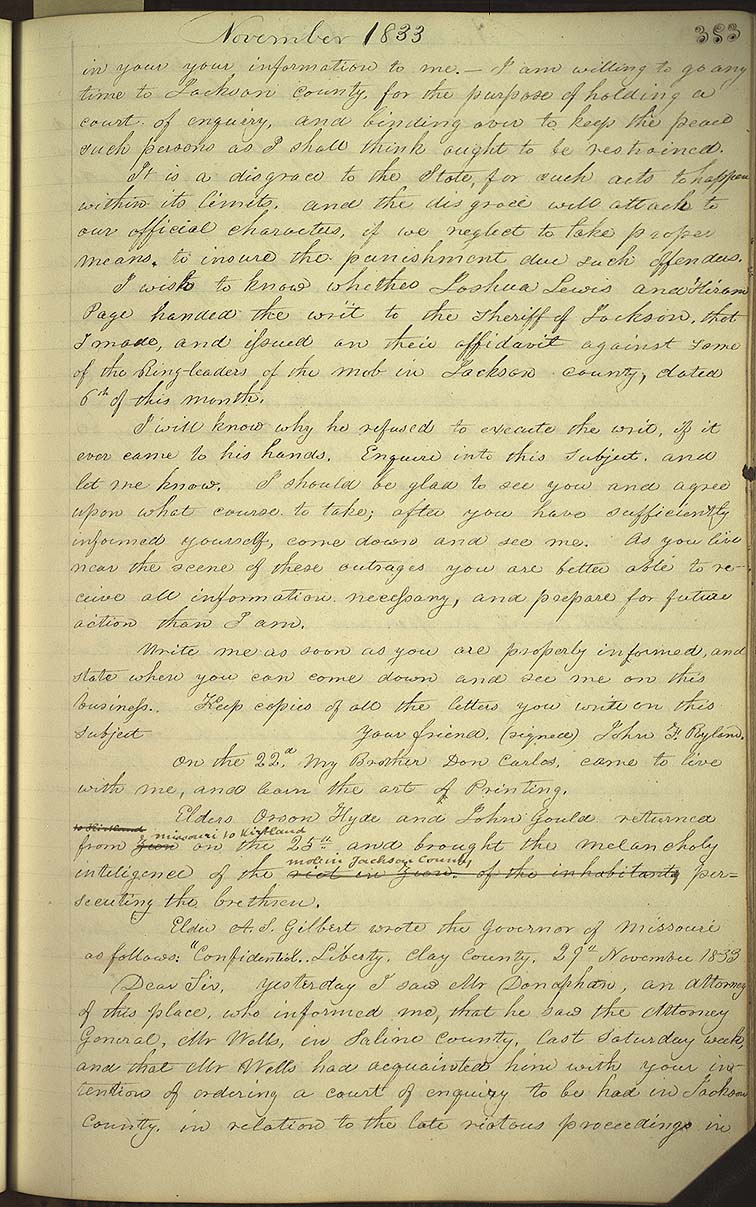 November 1833 383
in your your information to me.— I am willing to go any
time to Jackson county, for the purpose of holding a
court of enquiry, and binding over to keep the peace
such persons as I shall think ought to be restrained.
It is a disgrace to the State, for such acts to happen
within its limits, and the disgrace will attach to
our official characters, if we neglect to take proper
means, to insure the punishment due such offenders.
I wish to know whether Joshua Lewis and Hiram
Page handed the writ to the sheriff of Jackson, that
I made, and issued on their affidavit against some
of the Ring-leaders of the mob in Jackson county, dated
6th of this month.
I will know why he refused to execute the writ, if it
ever came to his hands. Enquire into this subject, and
let me know. I should be glad to see you and agree
upon what course to take; after you have sufficiently
informed yourself, come down and see me. As you live
near the scene of these outrages you are better able to re-
ceive all information necessary, and prepare for future
action than I am.
Write me as soon as you are properly informed, and
state when you can come down and see me on this
business. Keep copies of all the letters you write on this
subject Your friend, (signed) John F. Ryland.
On the 22d. My Brother Don Carlos, came to live
with me, and learn the art of Printing.
Elders Orson Hyde and John Gould returned
to Kirtland missouri to Kirtland
from Zion on the 25th and brought the melancholy
mob in Jackson County
inteligence of the riot in Zion. of the inhabitants per=
secuting the brethren.
Elder A. S. Gilbert wrote the Governor of Missouri
as follows: "Confidential.. Liberty, Clay County, 29th November 1833
Dear Sir, yesterday I saw Mr Donaphan, an attorney
of this place, who informed me, that he saw the Attorney
General, Mr Wells, in Saline County, last Saturday week,
and that Mr Wells had acquainted him with your in-
tention of ordering a court of enquiry to be had in Jackson
County, in relation to the late riotous proceedings in